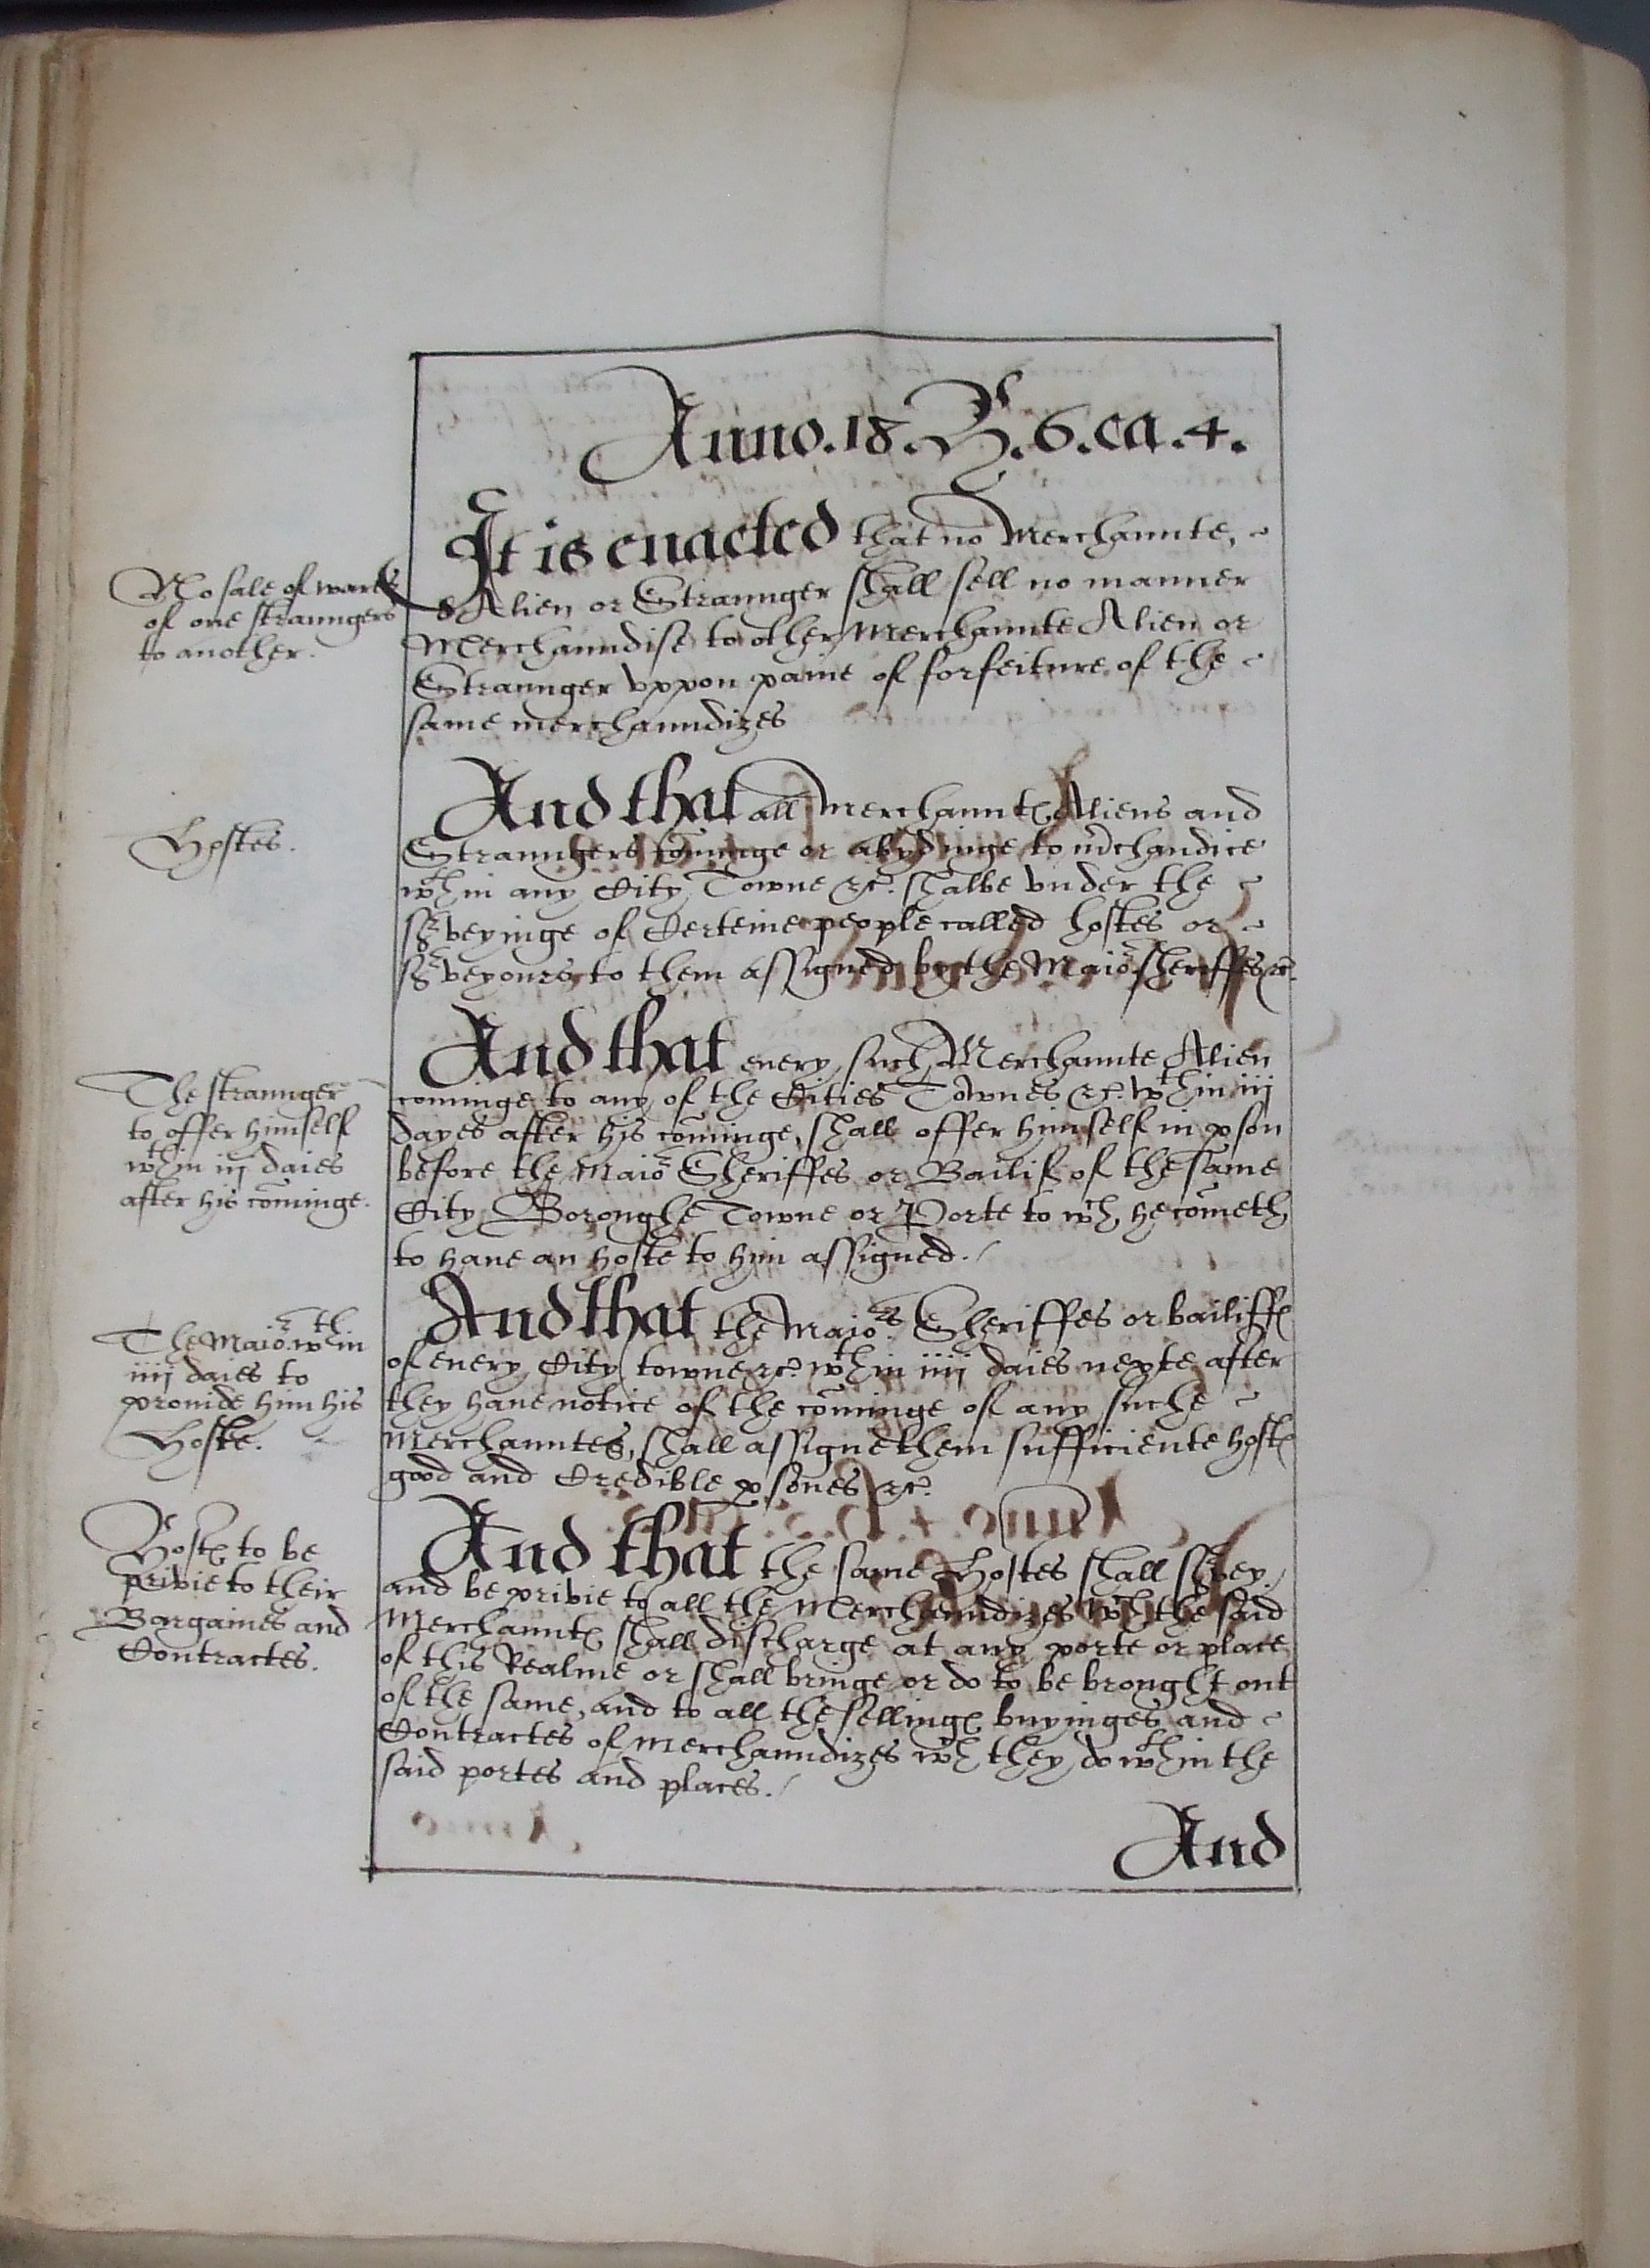 Anno.18.H.6.ca.4.
No sale of wares
of one straungers
to another.
It is enacted that no Merchaunte,
Alien or Straunger shall sell no manner
Merchaundise to other Merchaunte Alien or
Straunger vppon paine of forfeiture of the
same merchaundizes
Hostes.
And that all Merchauntes Aliens and
Straungers cominge or abydinge to mchandice
wthin any City Towne &c. shalbe vnder the
surveyinge of Certeine people called hostes or
surveyours to them assigned by the Maior sheriffes &c.
The straunger
to offer himself
wthin iij daies
after his cominge.
And that euery such Merchaunte Alien
cominge to any of the Cities Townes &c. wthin iij
dayes after his cominge, shall offer himself in pson
before the Maior Sheriffes or Bailifes of the same
City Boroughe Towne or Porte to wch he cometh
to haue an hoste to him assigned.
The Maior wthin
iiij daies to
prouide him his
Hoste.
And that the Maiors Sheriffes or bailiffes
of euery City towne &c. wthin iiij daies nexte after
they haue notice of the cominge of any suche
Merchauntes, shall assigne them sufficiente hostes
good and Credible psones &c.
Hostes to be
privie to their
Bargaines and
Contractes.
And that the same Hostes shall survey
and be privie to all the Merchaundizes wch the said
Merchauntes shall discharge at any porte or place
of this Realme or shall bringe or do to be brought out
of the same, and to all the sellinges buyinges and
Contractes of merchaundizes wch they do wthin the
said portes and places.
And